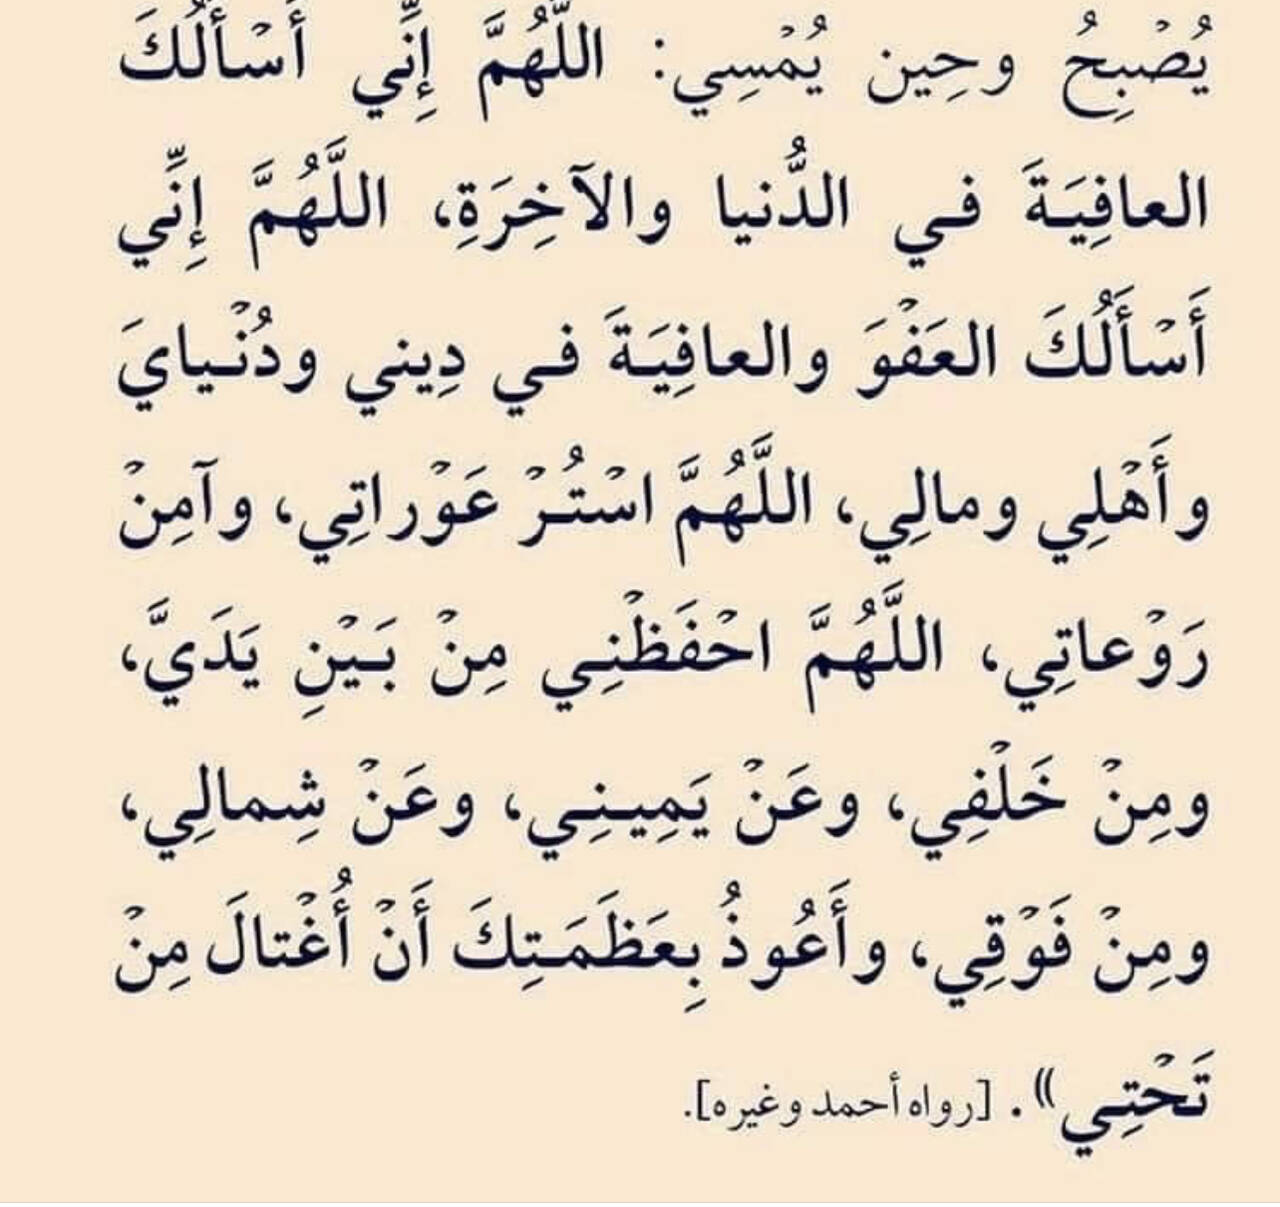 يُصْبِحُ وحِين يُمْسِي: اللَّهُمَّ إِنِّي أَسْأَلُكَ
العافِيَةَ في الدُّنيا والآخِرَةِ، اللَّهُمَّ إِنِّي
أَسْأَلُكَ العَفْوَ والعافِيَةَ في دِيني ودُنْيايَ
وأَهْلِي ومالِي، اللَّهُمَّ اسْتُرْ عَوْراتِي، وآمِنْ
رَوْعاتِي، اللَّهُمَّ احْفَظْنِي مِنْ بَيْنِ يَدَيَّ،
ومِنْ خَلْفِي، وعَنْ يَمِينِي، وعَنْ شِمالِي،
ومِنْ فَوْقِي، وأَعُوذُ بِعَظَمَتِكَ أَنْ أُغْتالَ مِنْ
تَحْتِي». [رواه أحمد وغيره].